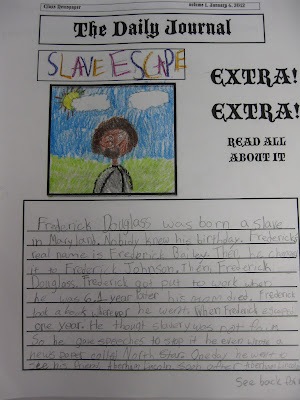 Class Newspaper
volume 1, January 6, 2012
The Daily Journal
SLAVE ESCAPE
EXTRA!
EXTRA!
READ ALL
ABOUT IT
Frederick Douglass was born a slave
in Maryland. Nobody knew his birthday. Frederick's
real name is Frederick Bailey. Then he changed
it to Frederick Johnson. Then Frederick
Douglass. Frederick got put to work when
he was 6. 1 year later his mom died. Frederick
took a book wherever he went. When Frederick escaped
one year. He thought slavery was not fair.
So he gave speeches to stop it he even wrote a
news paper called North Star. One day he went to
see his friend Abraham Lincoln. Soon after Abraham Lincoln
See back